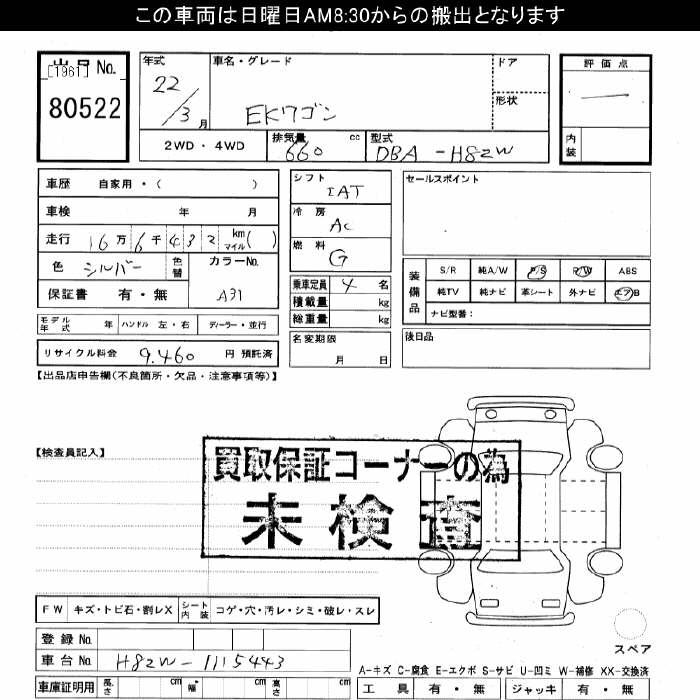 この車両は日曜日AM8:30からの搬出となります
出品 No.
[1961]
80522
年式
22/3 月
車名・グレード
EKワゴン
ドア
形状
評価点
—
内装
2WD・4WD
排気量 660 cc
型式 DBA-H82W
車歴 自家用・( )
車検 年 月
走行 16万6千432 km マイル( )
色 シルバー 色替
カラーNo. A31
保証書 有・無
モデル年式 年 ハンドル 左・右 ディーラー・並行
リサイクル料金 9,460 円 預託済
シフト IAT
冷房 AC
燃料 G
乗車定員 4 名
積載量 kg
総重量 kg
名変期限 月 日
セールスポイント
装備品
S/R 純A/W P/S P/W ABS
純TV 純ナビ 革シート 外ナビ エアB
ナビ型番:
後日品
【出品店申告欄(不良箇所・欠品・注意事項等)】
【検査員記入】
買取保証コーナーの為
未検査
FW キズ・トビ石・割レX シート内装 コゲ・穴・汚レ・シミ・破レ・スレ
登録No.
車台No. H82W-1115443
車庫証明用 長さ cm 幅 cm 高さ cm
スペア
A-キズ C-腐食 E-エクボ S-サビ U-凹ミ W-補修 XX-交換済
工具 有・無 ジャッキ 有・無